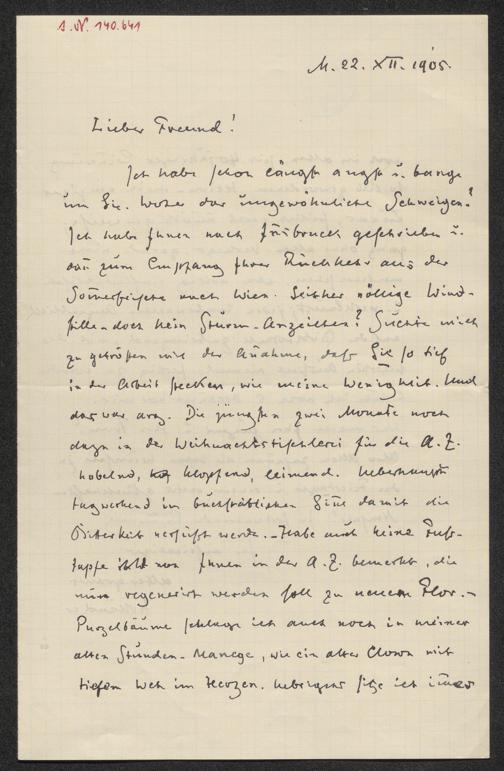 I. N. 140.641
M. 22. XII. 1905.
Lieber Freund!
Ich habe schon längst angst u. bange
um Sie. Woher das ungewöhnliche Schweigen?
Ich habe Ihnen nach Innsbruck geschrieben u.
dan̄ zum Empfang Ihrer Rückkehr aus der
Som̄erfrische nach Wien. Seither völlige Wind-
stille – doch kein Sturm-Anzeichen? Suchte mich
zu getrösten mit der Añahme, daß Sie so tief
in der Arbeit stecken, wie meine Wenigkeit. Und
das war arg. Die jüngsten zwei Monate noch
dazu in der Weihnachtstischlerei für die A. Z.
hobelnd, klopfend, leimend. Ueberhaupt
tagwerkend im buchstäblichen Siñe damit die
Bitterkeit versüßt werde. – Habe auch keine Fuß-
tapfe von Ihnen in der A. Z. bemerkt, die
nun regenerirt werden soll zu neuem Flor. –
Purzelbäume schlage ich auch noch in meiner
alten Stunden-Manege, wie ein alter Clown mit
tiefem Weh im Herzen. Uebrigens sitze ich im̄er